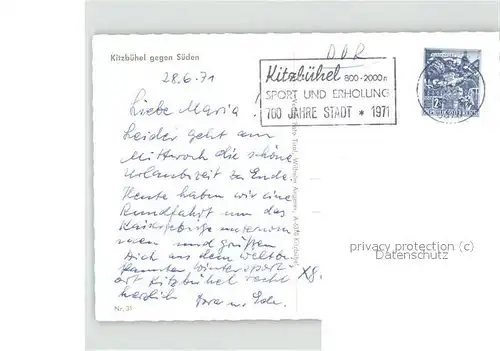 Kitzbühel gegen Süden
DDR
28.6.71
Kitzbühel 800-2000m
SPORT UND ERHOLUNG
700 JAHRE STADT * 1971
Liebe Maria!
Leider geht am
Mittwoch die schöne
Urlaubszeit zu Ende.
Heute haben wir eine
Rundfahrt um das
Kaisergebirge unternom
men und grüßen
Dich aus dem weltbe
kannten Wintersport
ort Kitzbühel recht
herzlich
Nr. 31
privacy protection (c)
Datenschutz